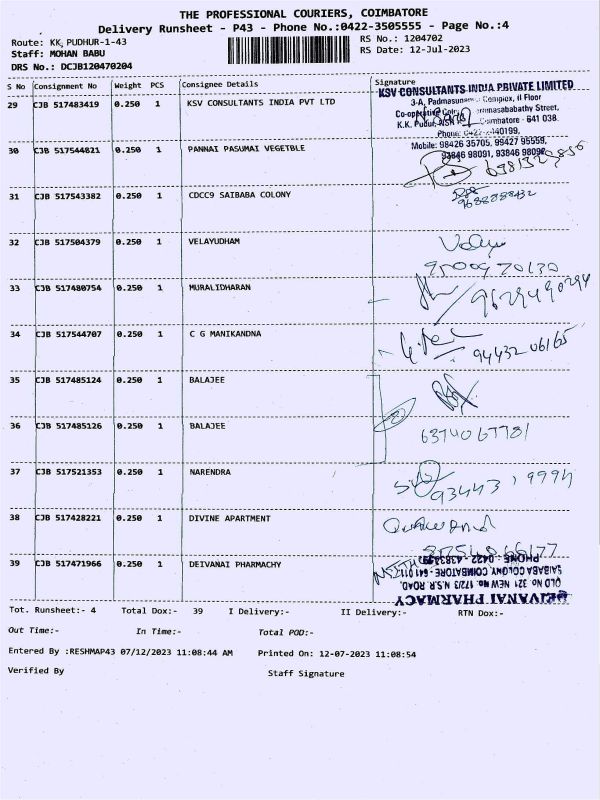 THE PROFESSIONAL COURIERS, COIMBATORE
Delivery Runsheet - P43 - Phone No.:0422-3505555 - Page No.:4
Route: KK, PUDHUR-1-43
RS No.: 1204702
Staff: MOHAN BABU
RS Date: 12-Jul-2023
DRS No.: DCJB120470204
S No Consignment No Weight PCS Consignee Details Signature
29 CJB 517483419 0.250 1 KSV CONSULTANTS INDIA PVT LTD
KSV CONSULTANTS INDIA PRIVATE LIMITED
Complex, II Floor
Street,
K.K. Pudur, Coimbatore - 641 038.
Mobile: 98426 35705, 99427 95559,
93846 98091, 93846 98092
30 CJB 517544821 0.250 1 PANNAI PASUMAI VEGETBLE
31 CJB 517543382 0.250 1 CDCC9 SAIBABA COLONY
32 CJB 517504379 0.250 1 VELAYUDHAM
33 CJB 517480754 0.250 1 MURALIDHARAN
34 CJB 517544707 0.250 1 C G MANIKANDNA
94432 06165
35 CJB 517485124 0.250 1 BALAJEE
36 CJB 517485126 0.250 1 BALAJEE
37 CJB 517521353 0.250 1 NARENDRA
38 CJB 517428221 0.250 1 DIVINE APARTMENT
39 CJB 517471966 0.250 1 DEIVANAI PHARMACHY
DEIVANAI PHARMACY
OLD No 321 NEW No. 172/3 N.S.R. ROAD,
SAIBABA COLONY, COIMBATORE - 641 011
Tot. Runsheet:- 4 Total Dox:- 39 I Delivery:- II Delivery:- RTN Dox:-
Out Time:- In Time:- Total POD:-
Entered By :RESHMAP43 07/12/2023 11:08:44 AM Printed On: 12-07-2023 11:08:54
Verified By Staff Signature